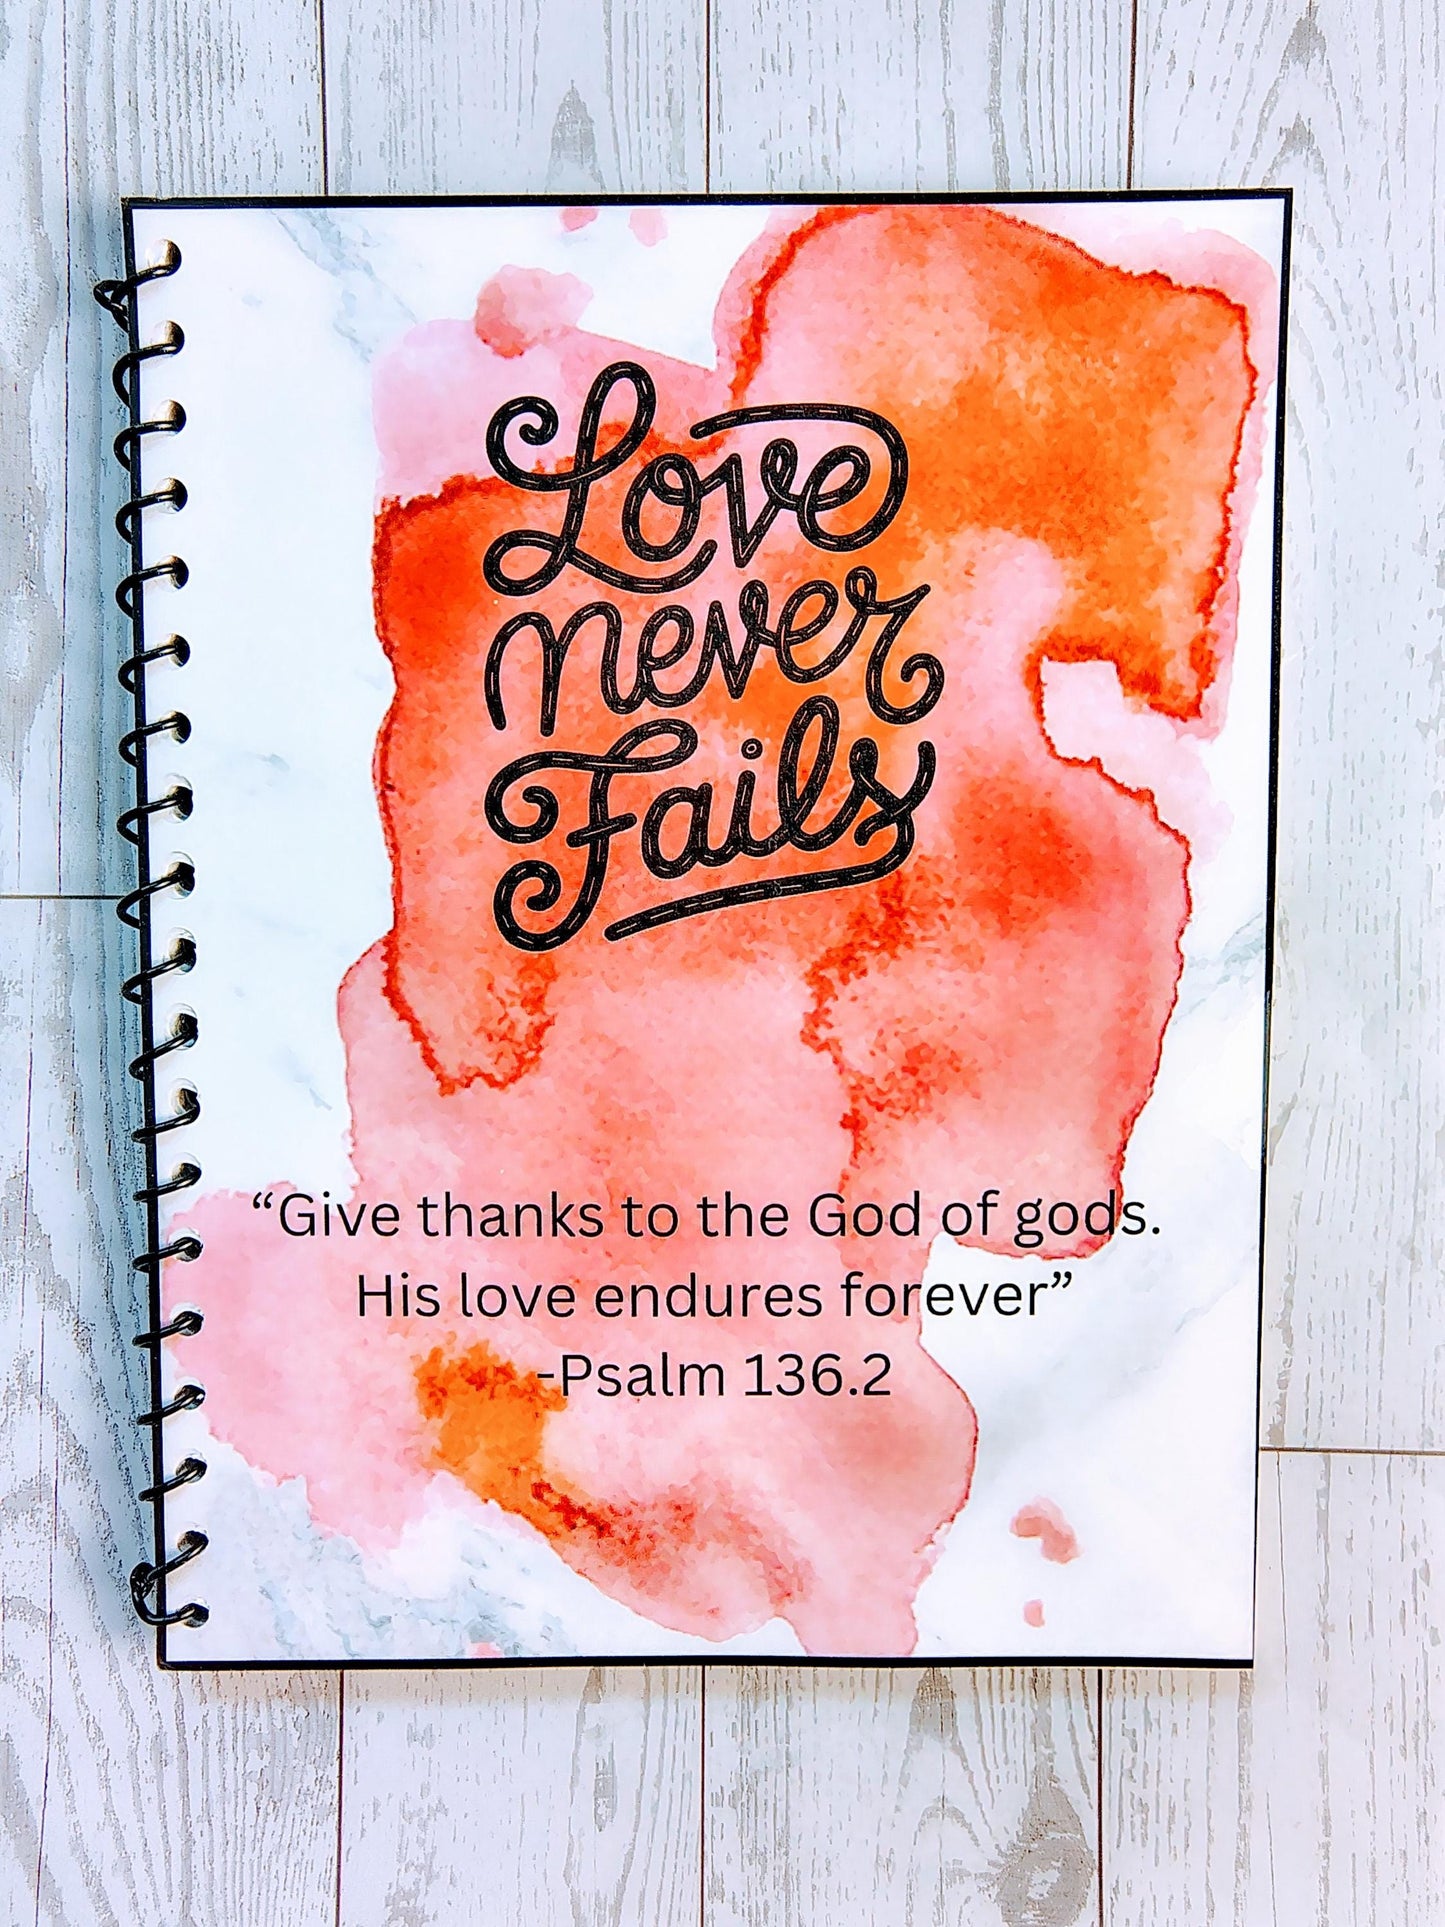 Love
never
Fails
“Give thanks to the God of gods.
His love endures forever”
-Psalm 136.2